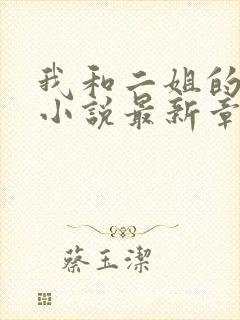 我和二姐的
小说最新章
蔡玉潔